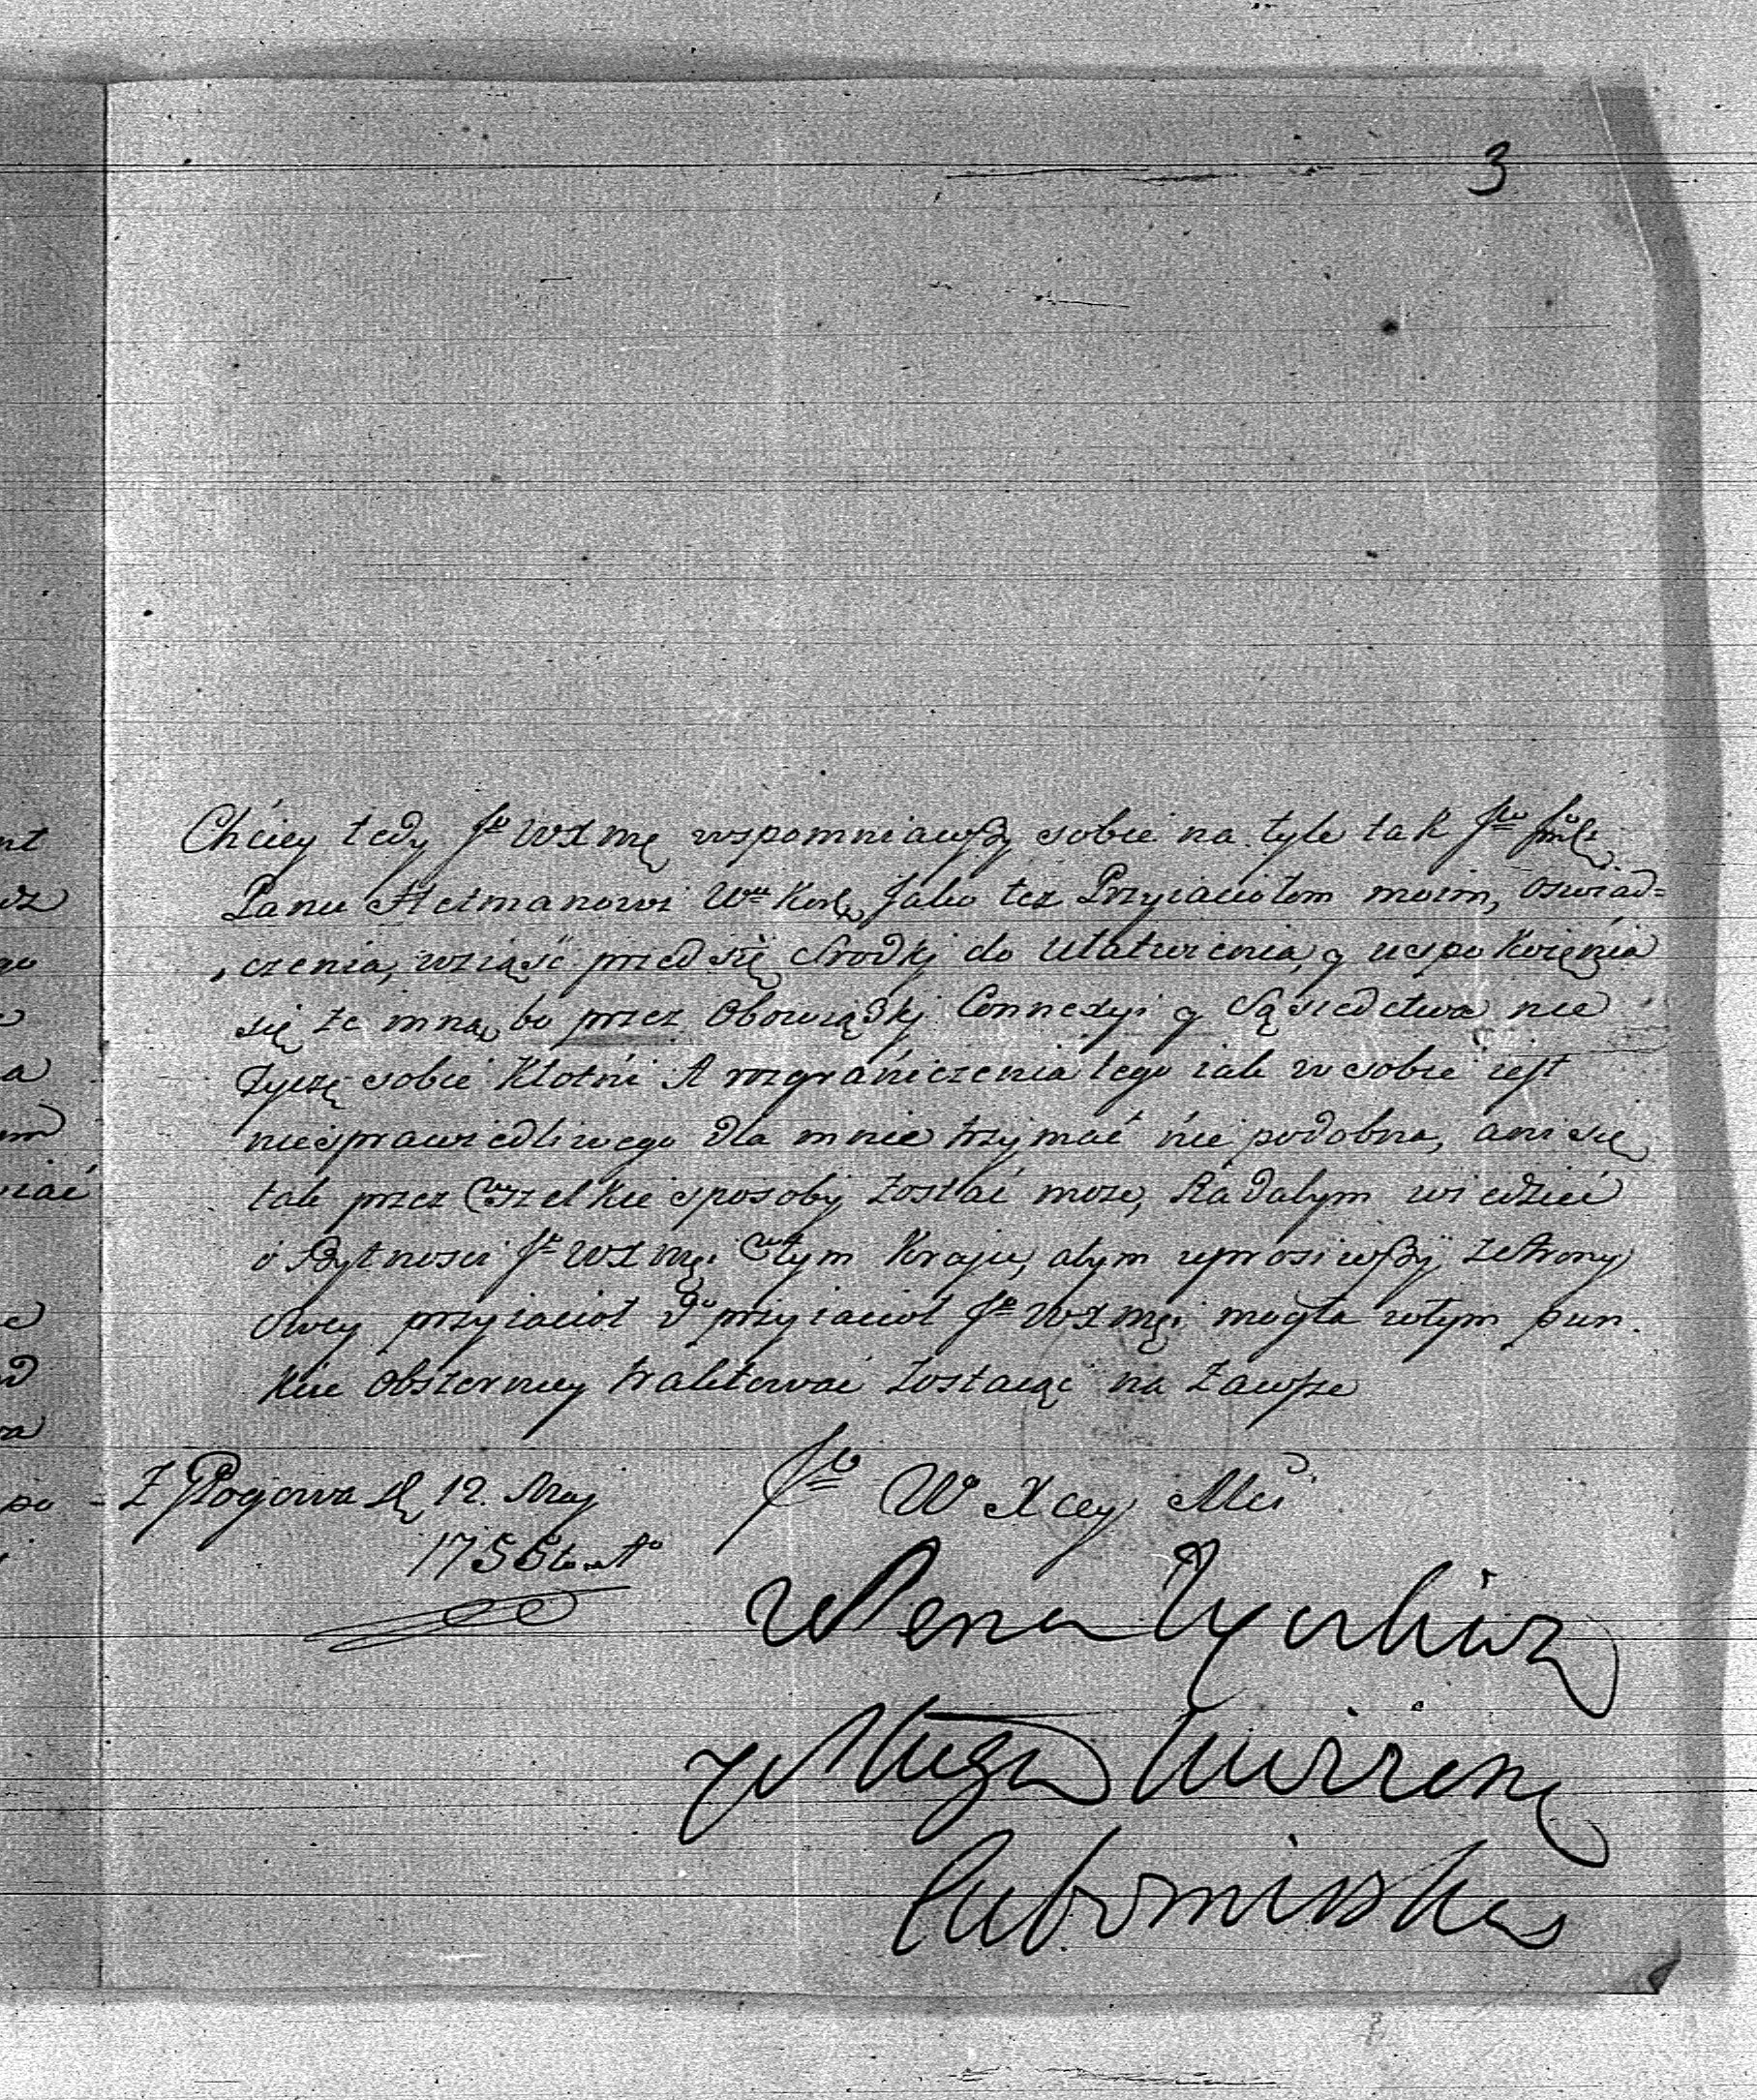 3
Chciey tedy Jo WXMę wspomniawszy sobie na tyle tak Jo
Panu Hetmanowi Wu Kor, Jako tez Przyiaciołom moim, oswiad=
czenia, wziąść przed się Srodkj do ułatwienia, y uspokoięnia
się ze mną, bo przez Obowiąskj Connexyi y Sąsiedctwa nie
życzę sobie Kłotni A rozgraniczenia tego iak w sobie iest
niesprawiedliwego dla mnie trzymać nie podobna, ani się
tak przez Wszelkie sposoby zostać moze, Radabym wiedzieć
o Bytnosci Jo WXMęi W tym Kraju, abym uprosiwszy ze strony
swey przyiacioł do przyiacioł Jo WXMęi mogła w tym pun.
kcie obszerniey traktować zostaiąc na zawsze
Z Głogowa D 12. Maj
1755to Ao
Jo W Xcey Mci
y Sługa
Lubomirska